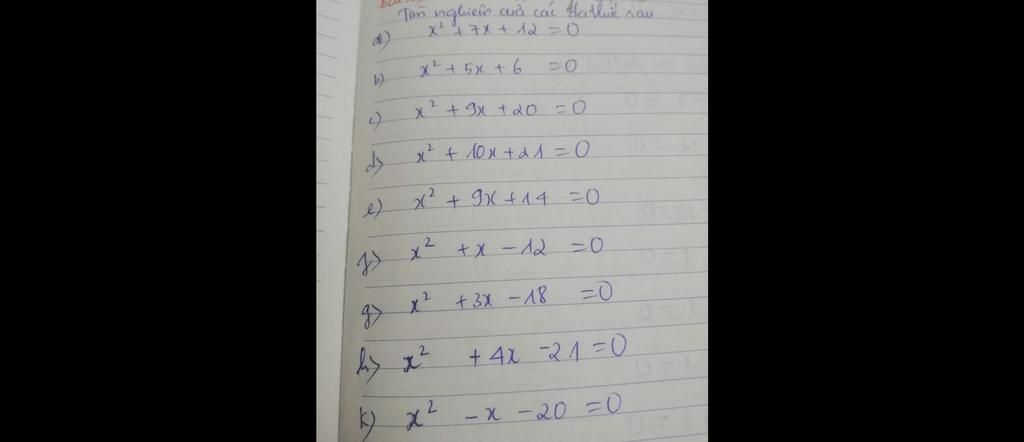 Tìm nghiệm của các đa thức sau.
a) x² + 7x + 12 = 0
b) x² + 5x + 6 = 0
c) x² + 9x + 20 = 0
d) x² + 10x + 21 = 0
e) x² + 9x + 14 = 0
f) x² + x - 12 = 0
g) x² + 3x - 18 = 0
h) x² + 4x - 21 = 0
k) x² - x - 20 = 0